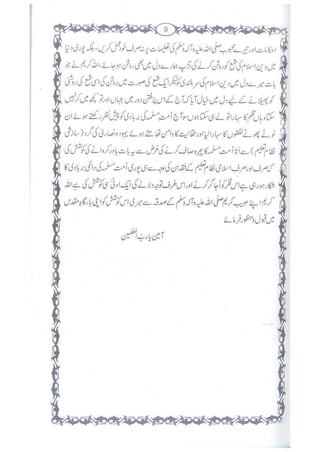 9
احکامات اور تیرے محبوب صلی اللہ علیہ وآلہ وسلم کی تعلیمات پر نہ صرف خود عمل کریں، بلکہ پوری دنیا
میں دین اسلام کی شمع کو روشن کرنے کی تڑپ ہمارے دل میں بھی روشن ہو جائے، اللہ کریم نے جو
بات میرے دل میں دین اسلام کی سربلندی کو لیکر ایک شمع کی صورت میں روشن کی اسی شمع کی روشنی
کو پھیلانے کے لیے دل میں خیال آیا کہ آج کے اس پرفتن دور میں جہاں اور تو کچھ میں کر نہیں
سکتا وہاں قلم کا سہارا تو لے ہی سکتا ہوں سو آج امت مسلمہ کی بربادی کو پیش نظر رکھتے ہوئے ان
ٹوٹے پھوٹے لفظوں کا سہارا لیا اور حقانیت کا دامن تھامتے ہوئے یہود و نصاریٰ کی گرد (سازشی
نظام تعلیم) سے اٹا امت مسلمہ کا چہرہ صاف کرنے کی غرض سے یہ بات باور کروانے کی کوشش کی
کہ صرف اور صرف اسلامی نظام تعلیم کے فقدان کی وجہ سے ہی پوری امت مسلمہ کی دائمی بربادی کا
شکار ہو رہی ہے اس فکر کو اُجاگر کرنے اور اس طرف توجہ دلانے کی ایک ادنیٰ سی کوشش کی ہے اللہ
کریم اپنے حبیب کریم صلی اللہ علیہ وآلہ وسلم کے صدقہ سے میری اس کوشش کو اپنی بارگاہ مقدس
میں قبول و منظور فرمائے
آمین یارب العالمین